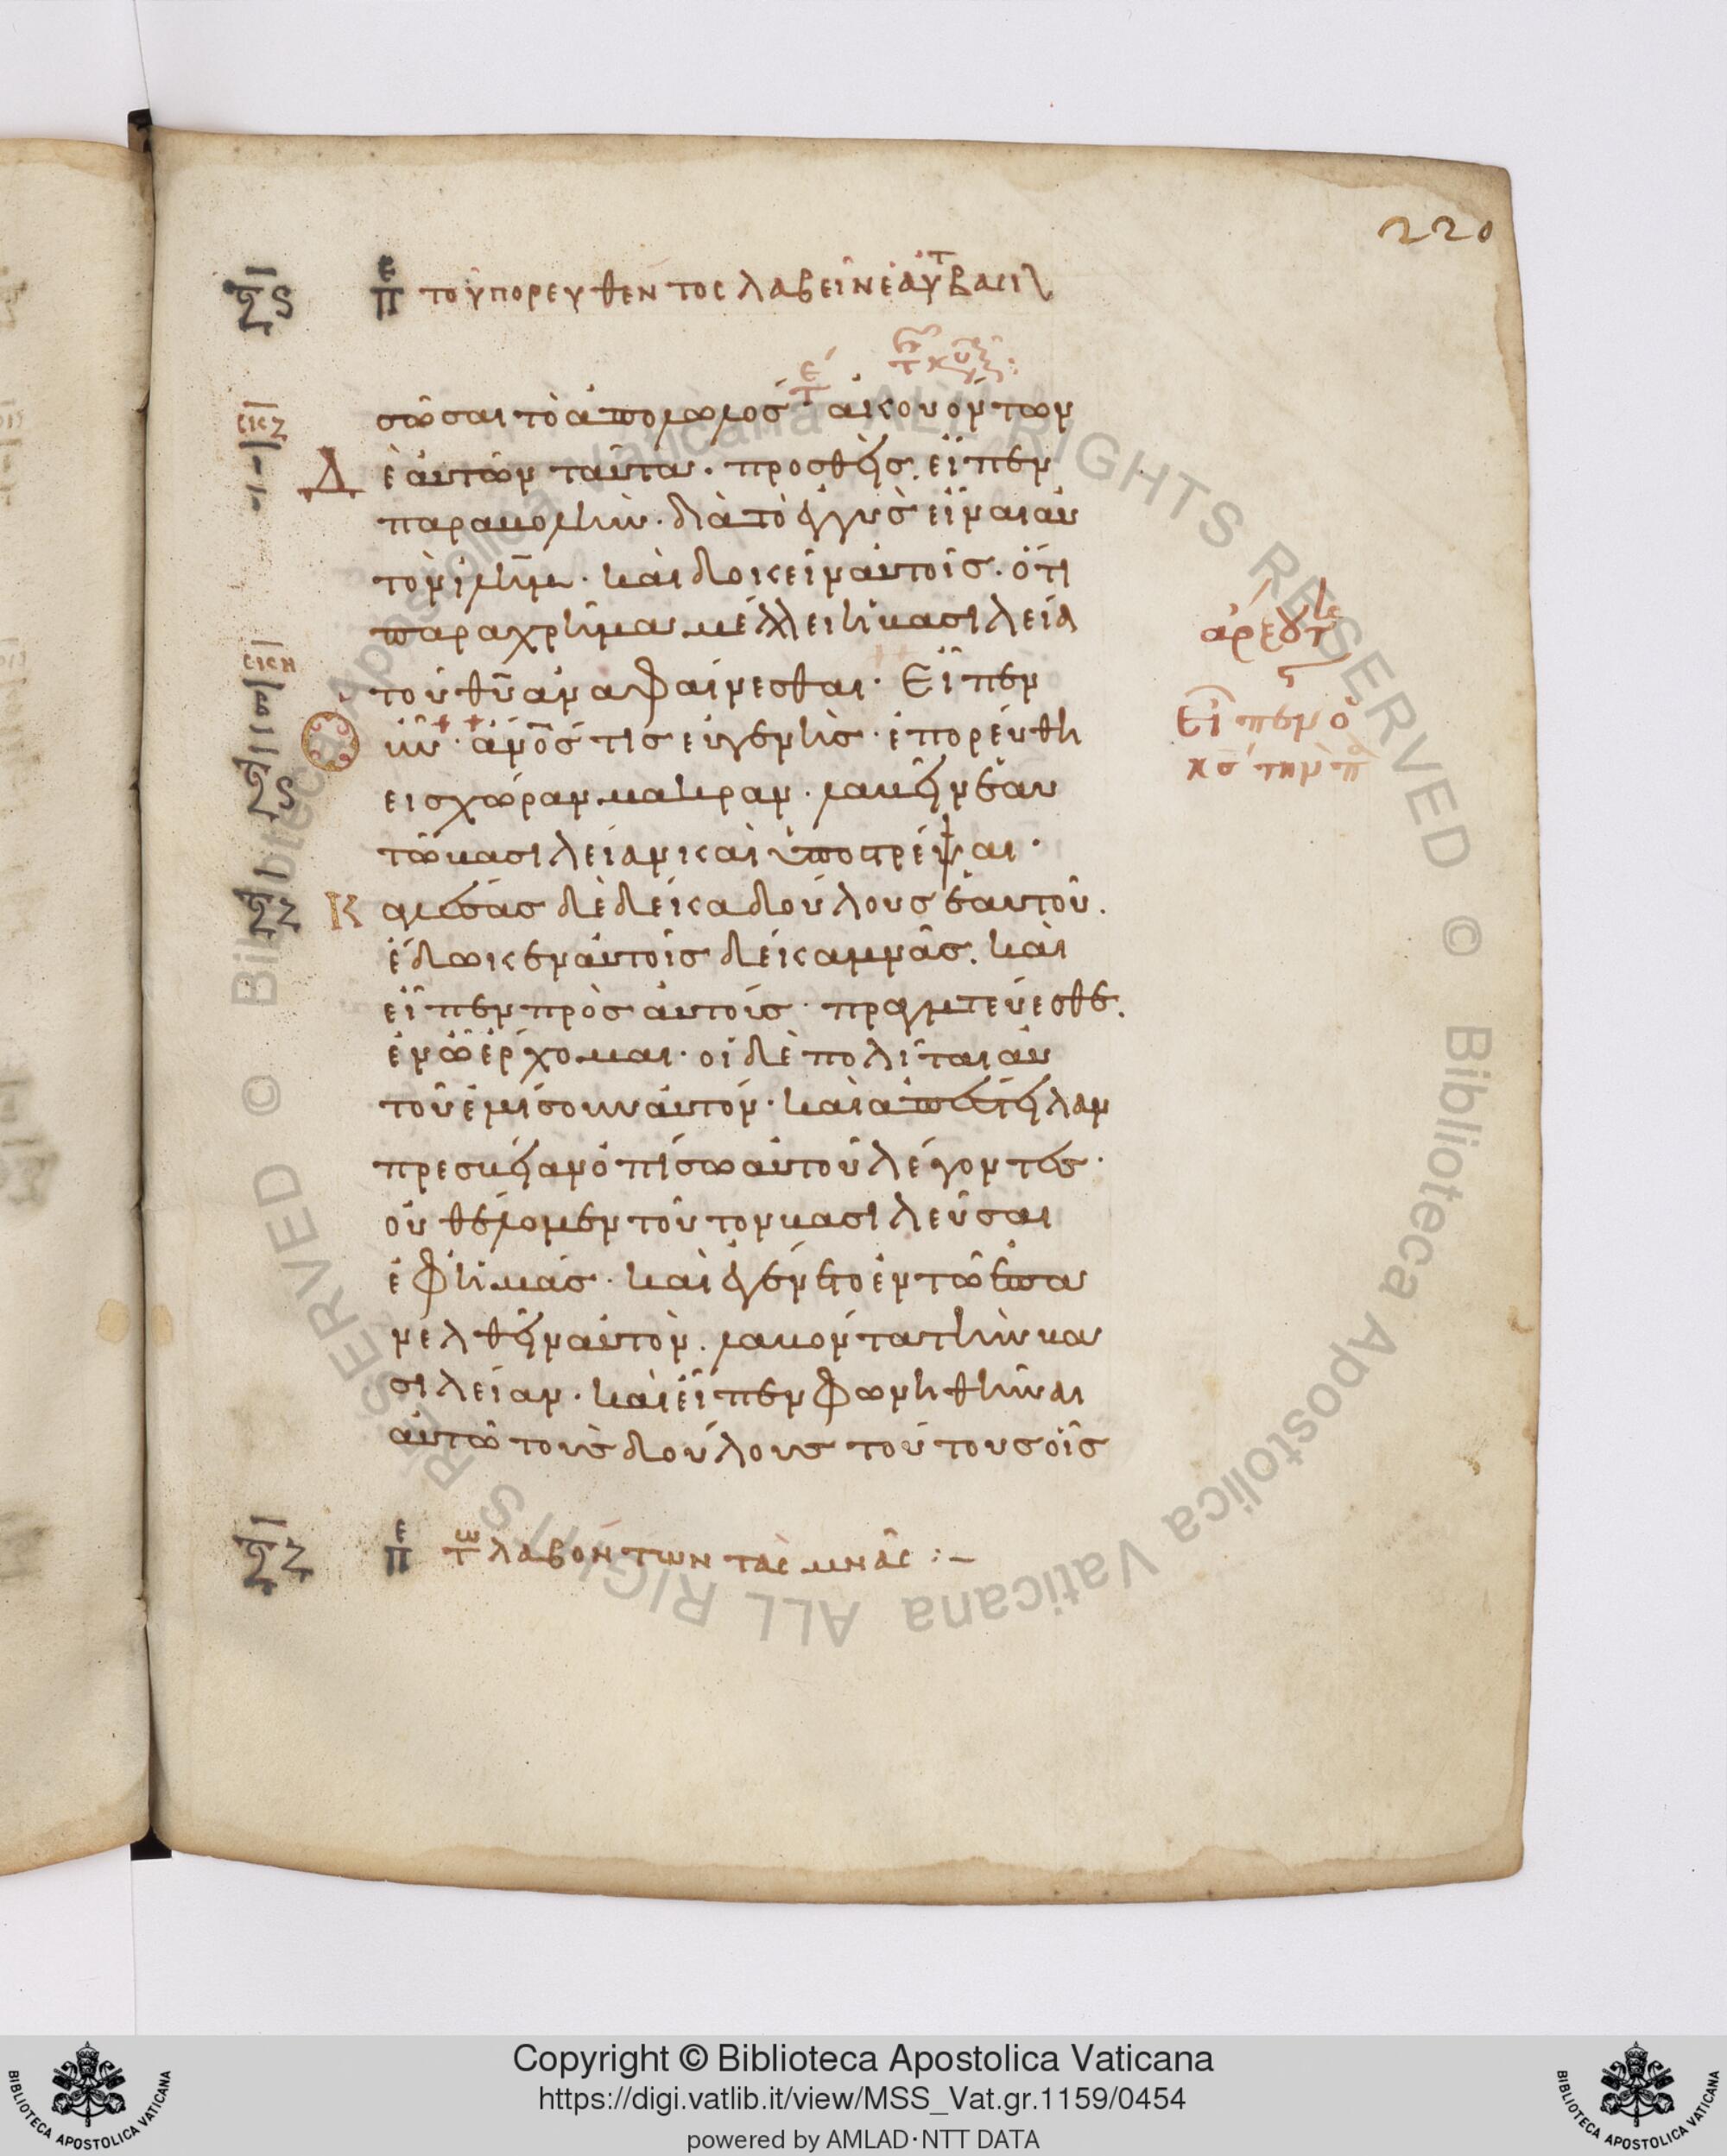 220
ξϛ πε τοῦ πορευθέντος λαβεῖν ἑαυτ βασιλ
σῶσαι τὸ ἀπολωλός· ἀκουόντων
σιζ
δὲ αὐτῶν ταῦτα· προσθεὶς εἶπεν
παραβολήν· διὰ τὸ ἐγγὺς εἶναι αὐ
τὸν ἱλημ· καὶ δοκεῖν αὐτοῖς· ὅτι
παραχρῆμα μέλλει ἡ βασιλεία
σιη
τοῦ θῦ ἀναφαίνεσθαι· Εἶπεν
οὖν· ἀνος τις εὐγενὴς· ἐπορεύθη
εἰς χώραν μακραν· λαβεῖν ἑαυ
τῶ βασιλείαν καὶ ὑποστρέψαι·
ξζ
Καλέσας δὲ δέκα δούλους ἑαυτοῦ·
ἔδωκεν αὐτοῖς δέκα μνᾶς· καὶ
εἶπεν πρὸς αὐτούς· πραγματεύεσθε·
ἐν ὧ ἔρχομαι· οἱ δὲ πολῖται αὐ
τοῦ ἐμίσουν αὐτόν· καὶ ἀπέστειλαν
πρεσβείαν ὀπίσω αὐτοῦ λέγοντες·
οὐ θέλομεν τοῦτον βασιλεῦσαι
ἐφ ἡμάς· καὶ ἐγένετο ἐν τῶ ἐπα
νελθεῖν αὐτὸν· λαβόντα τὴν βα
σιλείαν· καὶ εἶπεν φωνηθῆναι
αὐτῶ τοὺς δούλους τούτους οἷς
εἶπεν ὁ
κσ τὴν π
ξζ πε τω λαβόντων τὰς μνᾶς :–
Copyright © Biblioteca Apostolica Vaticana
https://digi.vatlib.it/view/MSS_Vat.gr.1159/0454
powered by AMLAD·NTT DATA
BIBLIOTECA APOSTOLICA VATICANA
BIBLIOTECA APOSTOLICA VATICANA
© Biblioteca Apostolica Vaticana ALL RIGHTS RESERVED
© Biblioteca Apostolica Vaticana ALL RIGHTS RESERVED